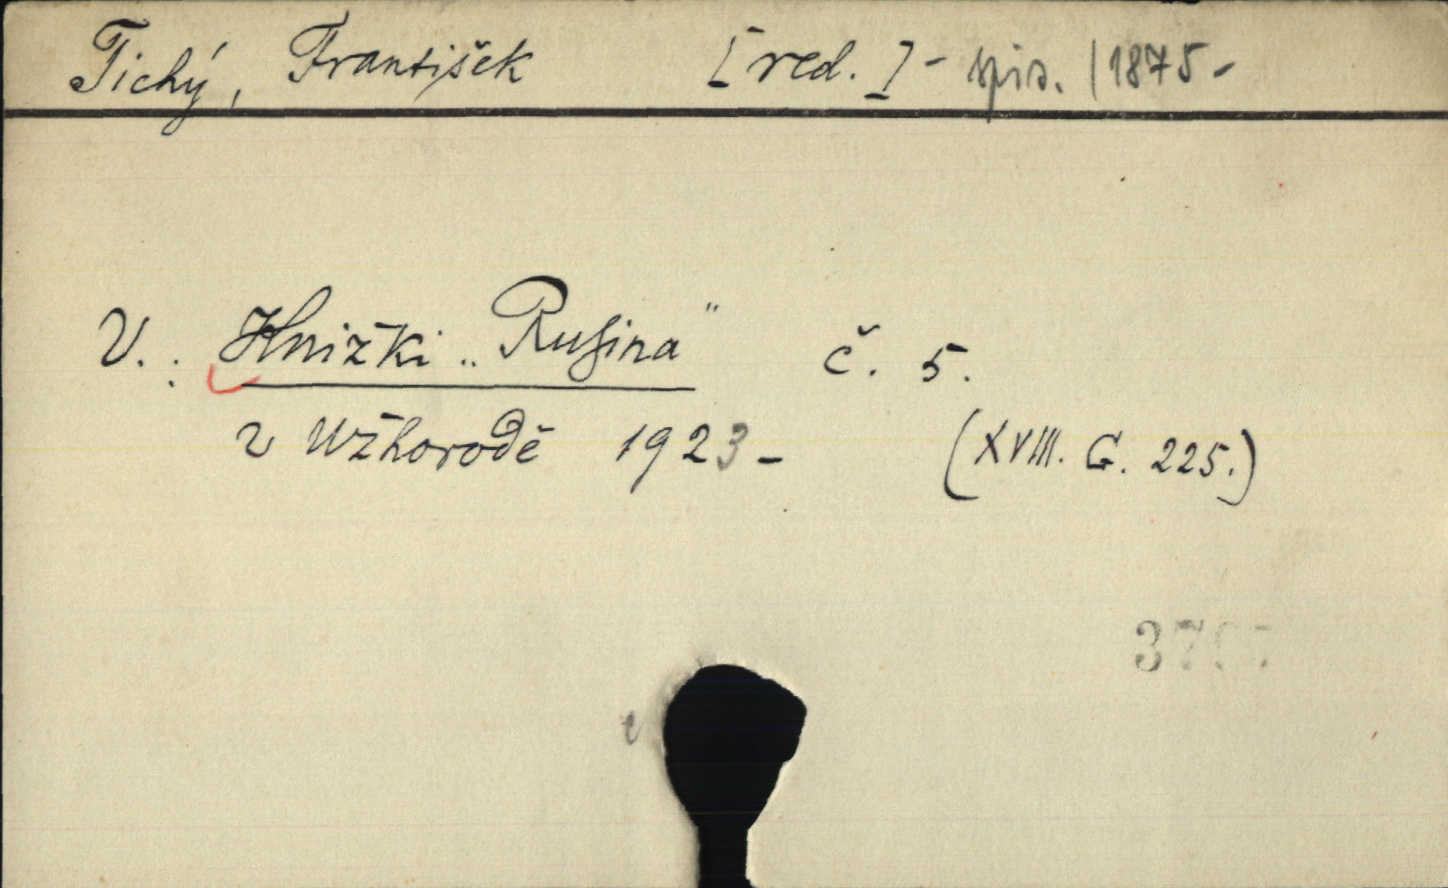 Tichý, František [red.] - spis. | 1875-
V.: Knižki „Rusina" č. 5.
v Užhorodě 1923- (XVIII. G. 225.)